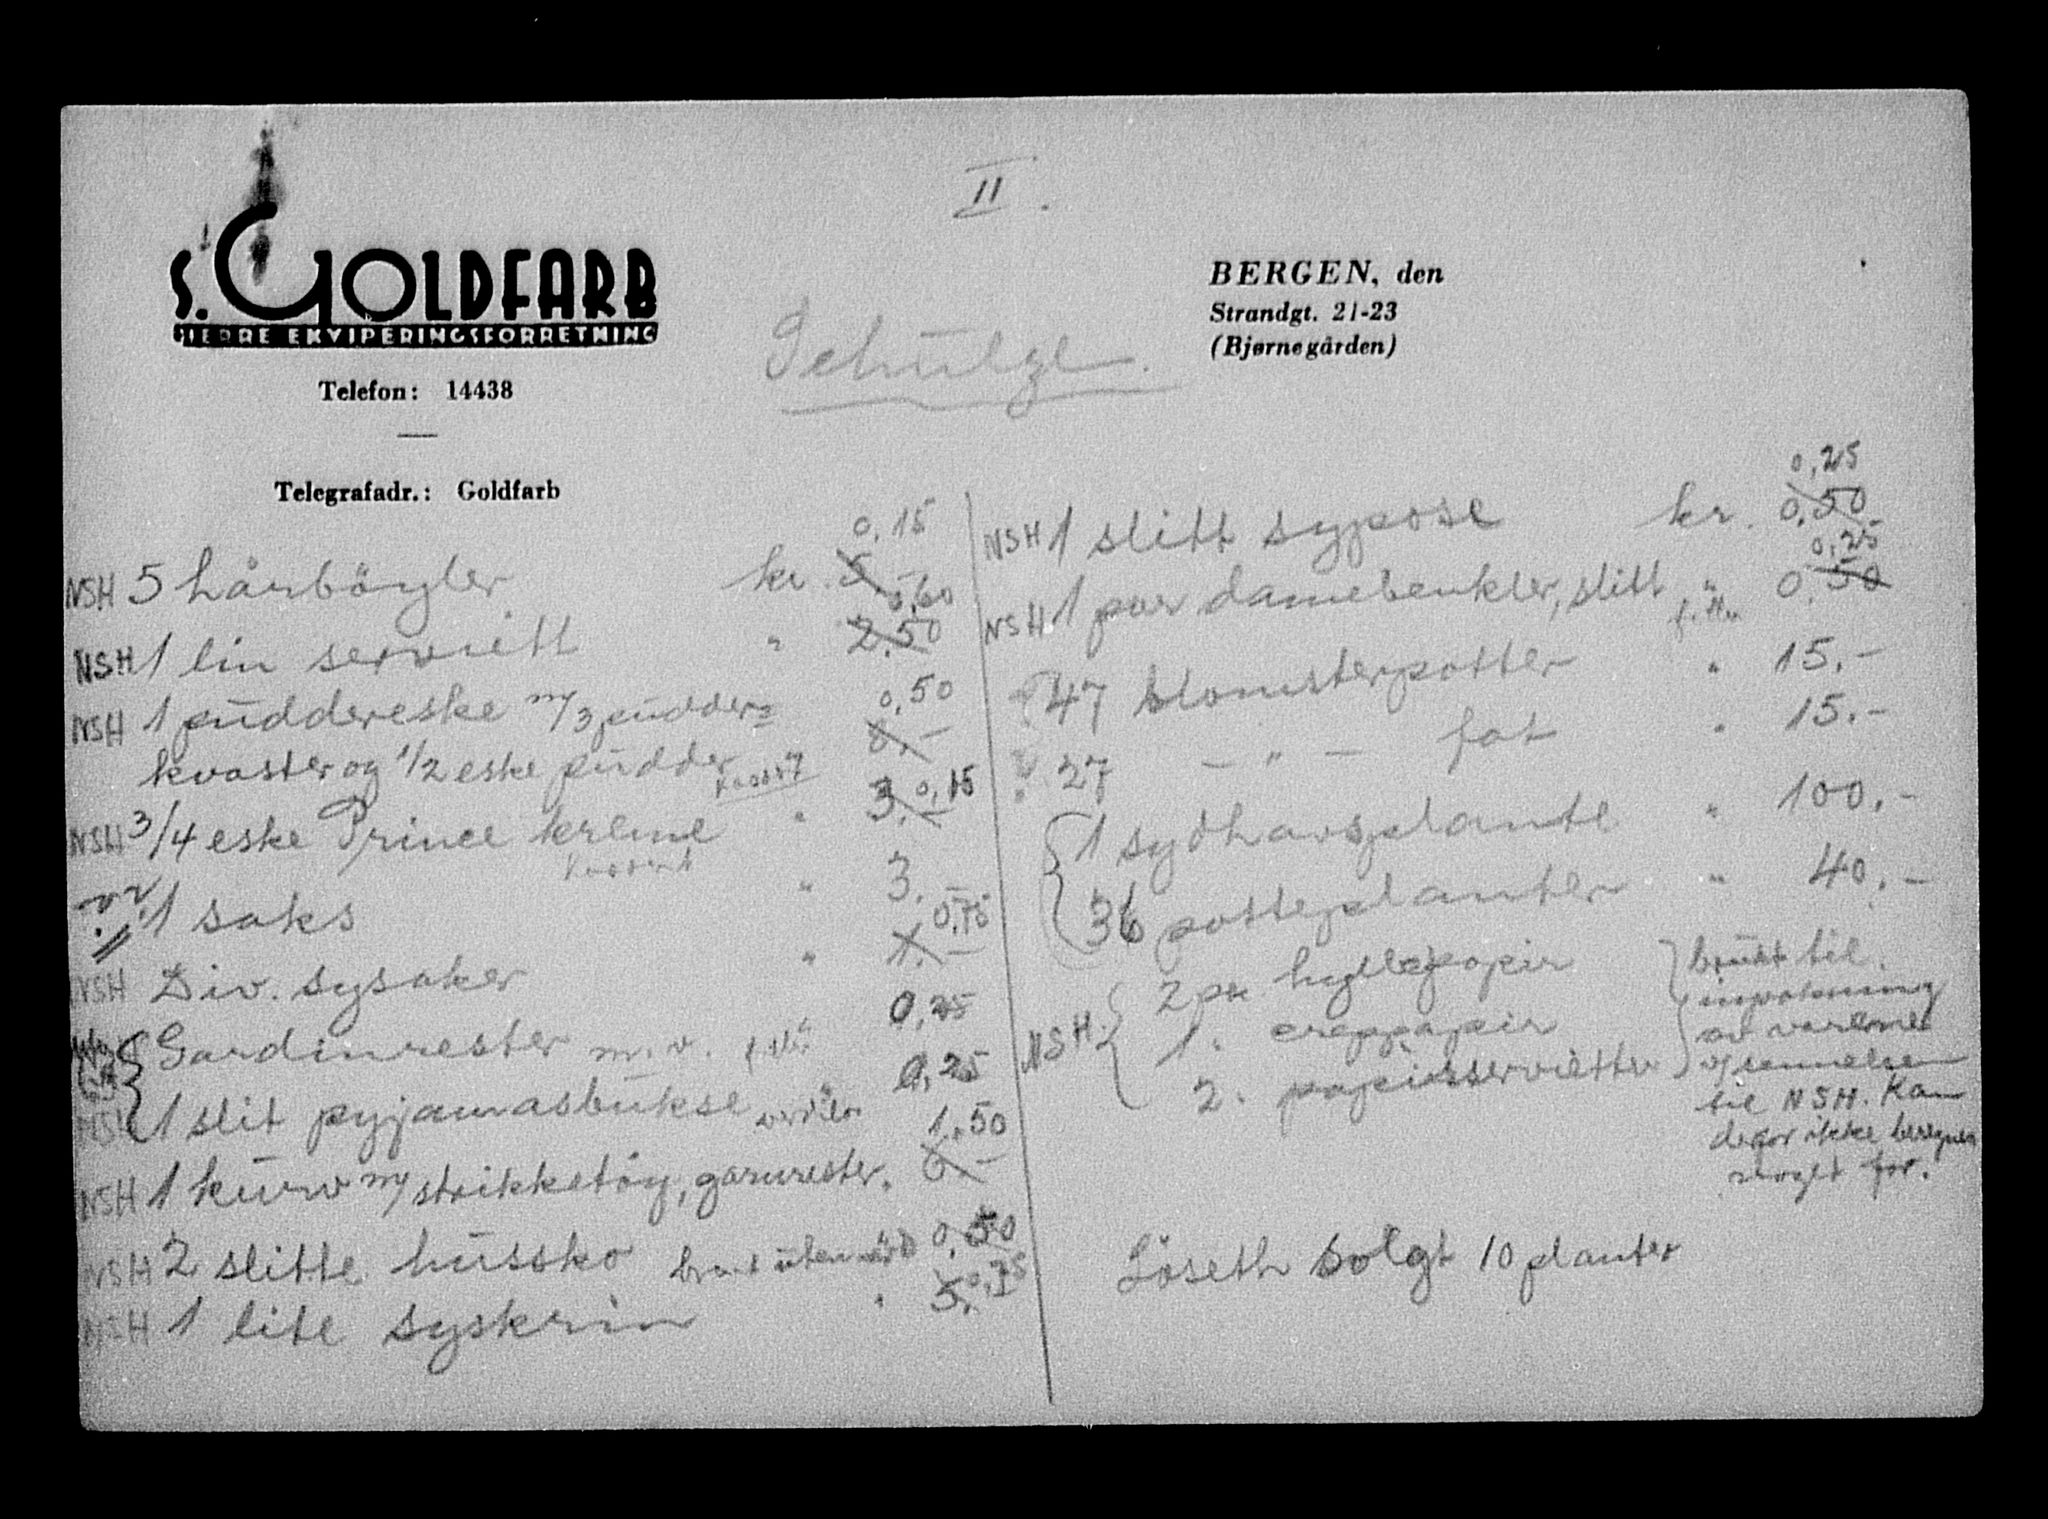 II.
S. GOLDFARB
HERRE EKVIPERINGSFORRETNING
Telefon: 14438
Telegrafadr.: Goldfarb
BERGEN, den
Strandgt. 21-23
(Bjørnegården)
Schulze.
0,15
NSH 5 hårböyler kr. 5
0,60
NSH 1 lin serviett " 2,50
0,50
NSH 1 puddereske m/3 pudder= 8.-
kvaster og 1/2 eske pudder kassert
0,15
NSH 3/4 eske Prince kreme " 3.-
kassert
1 saks " 3.-
0,75
NSH Div. sysaker " 1.-
Gardinrester m.v. 0,25
NSH 1 slit pyjamasbukse 0,25
1,50
NSH 1 kurv m/ strikketöy, garnrester. 6.-
NSH 2 slitte hussko uten verd 0,50
0,75
NSH 1 lite syskrin " 5.
0,25
NSH 1 slitt sypose kr. 0,50
0,25
NSH 1 par damebenkler, slitt " 0,50
47 blomsterpotter " 15.-
" 27 - " - fat " 15.-
1 sydhavsplante " 100.-
36 potteplanter " 40.-
NSH 2 pk. hyllepapir
1 " creppapir
2 " papirservietter
brukt til
inpakning
av varerne
til NSH. Kan
derfor ikke beregnes
noget for.
Löseth solgt 10 planter